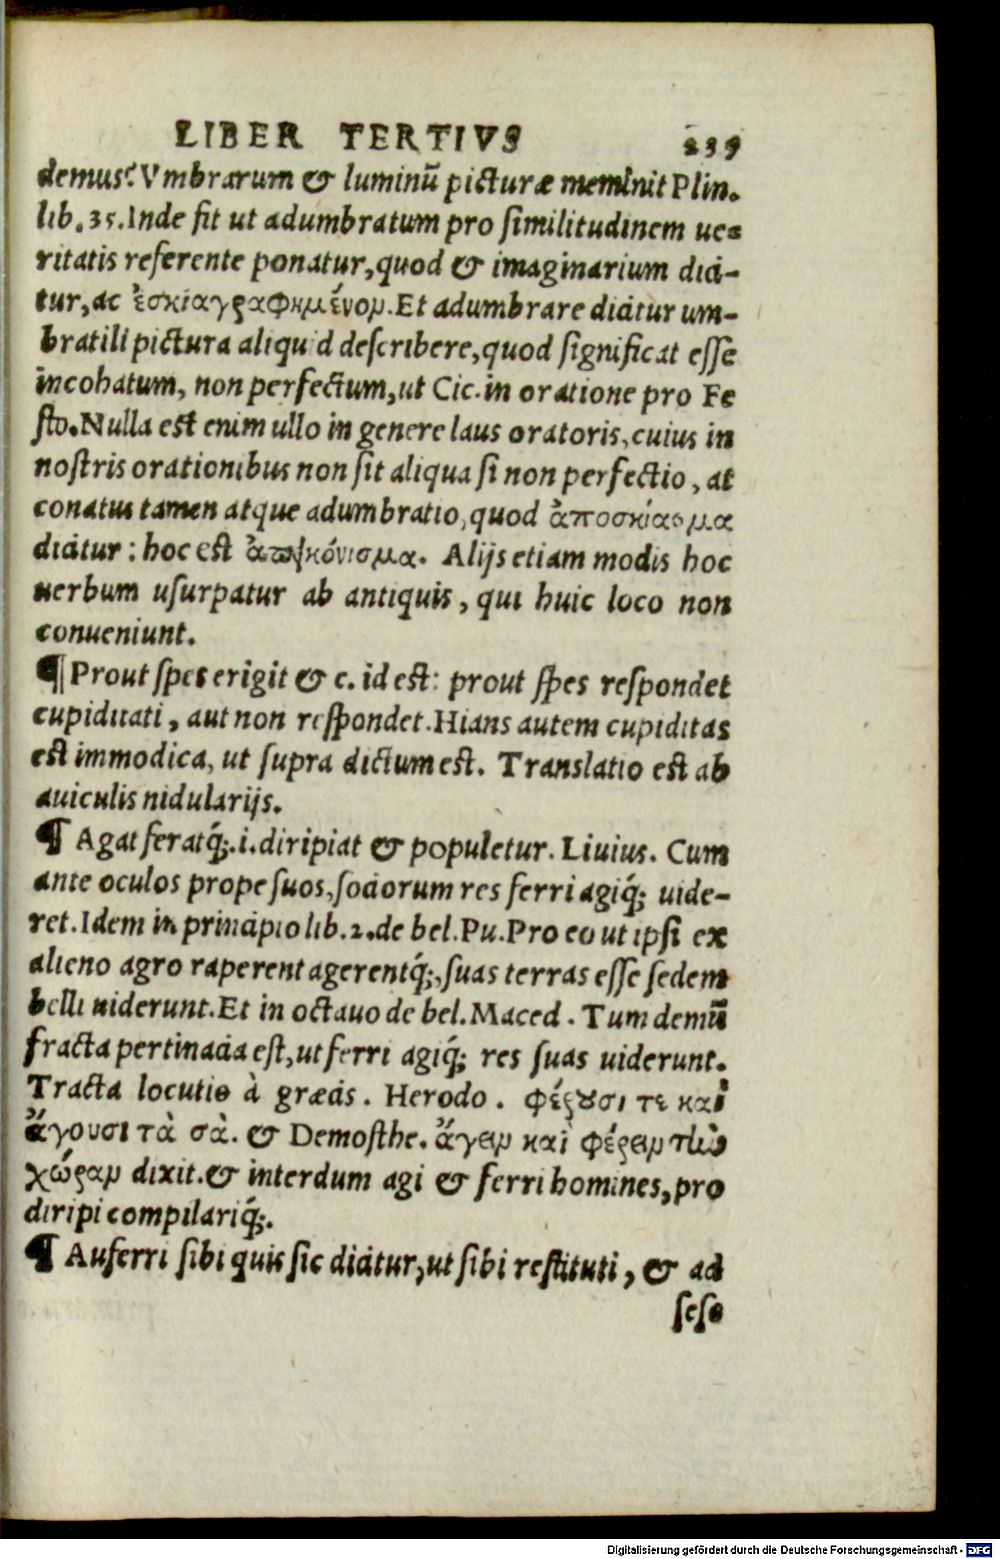 LIBER TERTIVS 239
demus? Vmbrarum & luminū picturæ meminit Plin.
lib. 35. Inde fit ut adumbratum pro similitudinem ue-
ritatis referente ponatur, quod & imaginarium dici-
tur, ac ἐσκιαγραφημένον. Et adumbrare dicitur um-
bratili pictura aliquid describere, quod significat esse
incohatum, non perfectum, ut Cic. in oratione pro Fe
sto. Nulla est enim ullo in genere laus oratoris, cuius in
nostris orationibus non sit aliqua si non perfectio, at
conatus tamen atque adumbratio, quod ἀποσκίασμα
dicitur: hoc est ἀπεικόνισμα. Alijs etiam modis hoc
uerbum usurpatur ab antiquis, qui huic loco non
conueniunt.
¶ Prout spes erigit & c. id est: prout spes respondet
cupiditati, aut non respondet. Hians autem cupiditas
est immodica, ut supra dictum est. Translatio est ab
auiculis nidularijs.
¶ Agat feratq́;. i. diripiat & populetur. Liuius. Cum
ante oculos prope suos, sociorum res ferri agiq́; uide-
ret. Idem in principio lib. 2. de bel. Pu. Pro eo ut ipsi ex
alieno agro raperent agerentq́;, suas terras esse sedem
belli uiderunt. Et in octauo de bel. Maced. Tum demū
fracta pertinacia est, ut ferri agiq́; res suas uiderunt.
Tracta locutio à græcis. Herodo. φέρουσι τε καὶ
ἄγουσι τὰ σὰ. & Demosthe. ἄγειν καὶ φέρειν τὴν
χώραν dixit. & interdum agi & ferri homines, pro
diripi compilariq́;.
¶ Auferri sibi quis sic dicitur, ut sibi restituti, & ad
sese
Digitalisierung gefördert durch die Deutsche Forschungsgemeinschaft - DFG